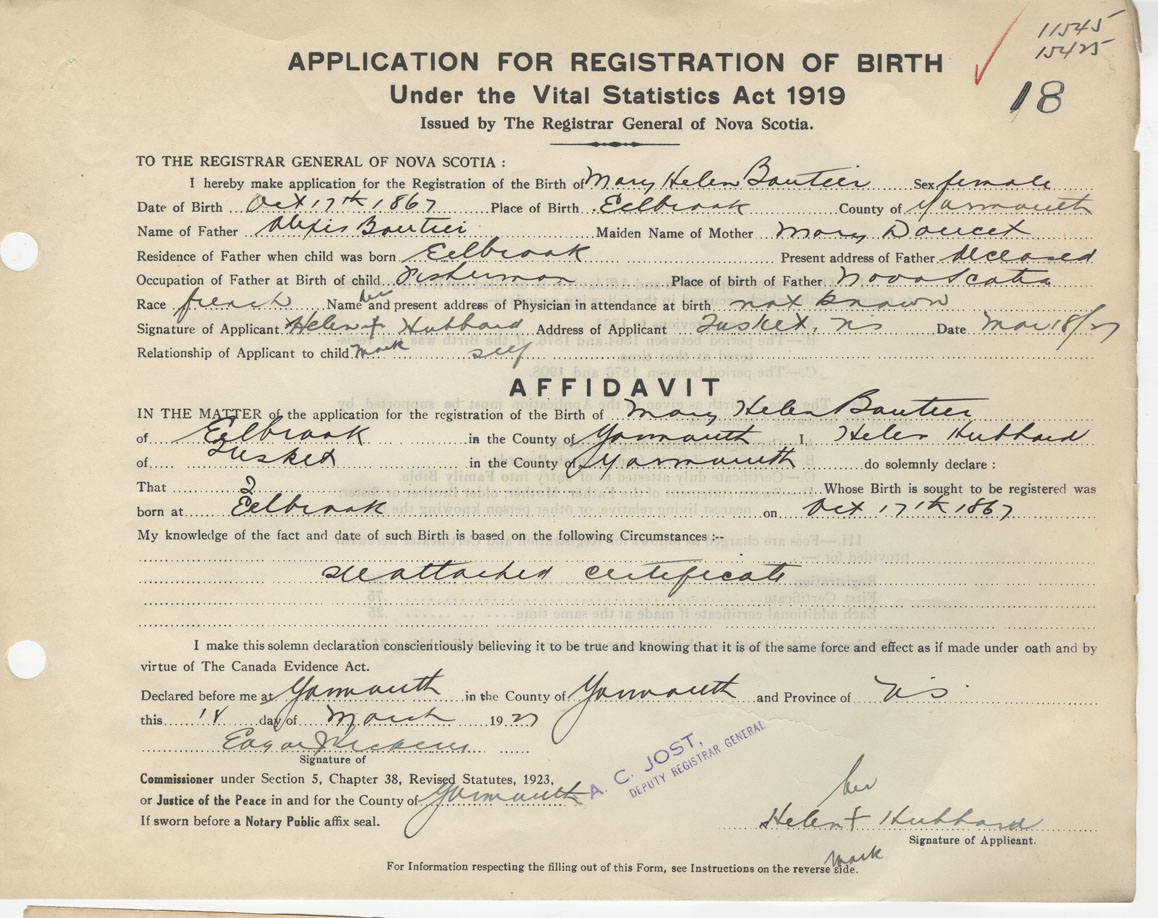 11545
15425
18
APPLICATION FOR REGISTRATION OF BIRTH
Under the Vital Statistics Act 1919
Issued by The Registrar General of Nova Scotia.
TO THE REGISTRAR GENERAL OF NOVA SCOTIA :
I hereby make application for the Registration of the Birth of Mary Helen Boutier Sex female
Date of Birth Oct 17th 1867 Place of Birth Eelbrook County of Yarmouth
Name of Father Alexis Boutier Maiden Name of Mother Mary Doucet
Residence of Father when child was born Eelbrook Present address of Father deceased
Occupation of Father at Birth of child Fisherman Place of birth of Father Nova Scotia
Race french Name and present address of Physician in attendance at birth not known
her
Signature of Applicant Helen + Hubbard Address of Applicant Tusket, NS Date Mar 18/27
Relationship of Applicant to child mark self
AFFIDAVIT
IN THE MATTER of the application for the registration of the Birth of Mary Helen Boutier
of Eelbrook in the County of Yarmouth I Helen Hubbard
of Tusket in the County of Yarmouth do solemnly declare :
That I Whose Birth is sought to be registered was
born at Eelbrook on Oct 17th 1867
My knowledge of the fact and date of such Birth is based on the following Circumstances :--
see attached certificate
I make this solemn declaration conscientiously believing it to be true and knowing that it is of the same force and effect as if made under oath and by
virtue of The Canada Evidence Act.
Declared before me at Yarmouth in the County of Yarmouth and Province of NS.
this 18 day of March 1927
Signature of
Commissioner under Section 5, Chapter 38, Revised Statutes, 1923,
or Justice of the Peace in and for the County of Yarmouth
If sworn before a Notary Public affix seal.
A. C. JOST,
DEPUTY REGISTRAR GENERAL
her
Helen + Hubbard
Signature of Applicant.
mark
For Information respecting the filling out of this Form, see Instructions on the reverse side.